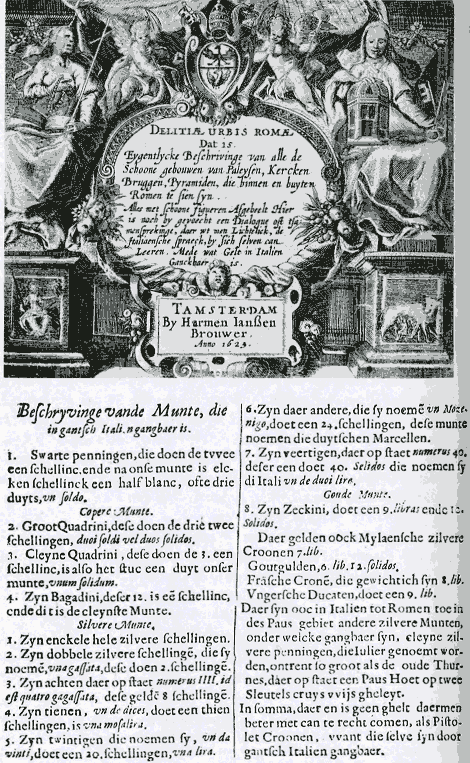 DELITIÆ URBIS ROMÆ
Dat is
Eygentlycke Beschrivinge van alle de
Schoone gebouwen van Paleysen, Kercken
Bruggen, Pyramiden, die binnen en buyten
Romen te sien syn.
Alles met schoone figueren Afgebeelt Hier
is noch by gevoecht een Dialogue oft
mensprekinge, daer wt men Lichtelick, de
Italiaensche spraeck, by sich selven can
Leeren. Mede wat Gelt in Italien
Ganckbaer is.
TAMSTERDAM
By Harmen Ianßen
Brouwer.
Anno 1624.
Beschryvinge vande Munte, die
in gantsch Itali. n gangbaer is.
1. Swarte penningen, die doen de tvvee
een schellinc. ende na onse munte is elc-
ken schellinck een half blanc, ofte drie
duyts, vn soldo.
Copere Munte.
2. Groot Quadrini, dese doen de drie twee
schellingen, duoi soldi vel duos solidos.
3. Cleyne Quadrini, dese de 3. een
schellinc, is also het stuc een duyt onser
munte, vnum solidum.
4. Zyn Bagadini, deser 12. is eē schellinc,
ende di t is de cleynste Munte.
Silvere Munte.
1. Zyn enckele hele zilvere schellingen.
2. Zyn dobbele zilvere schellingē, die sy
noemē, vna gassata, dese doen 2. schellingē.
3. Zyn achten daer op staet numerus IIII, id
est quatro gagassata, dese geldē 8 schellingē.
4. Zyn tienen, vn de dieces, doet een thien
schellingen, is vna mosalira.
5. Zyn twintigen die noemen sy, vn da
vinti, doet een 20. schellingen, vna lira.
6. Zyn daer andere, die sy noemē vn Moze-
nigo, doet een 24. schellingen, dese munte
noemen die duytschen Marcellen.
7. Zyn veertigen, daer op staet numerus 40.
deser een doet 40. Solidos die noemen sy
di Itali vn de duoi lire.
Goude Munte.
8. Zyn Zeckini, doet een 9. libras ende 12.
Solidos.
Daer gelden oock Mylaensche zilvere
Croonen 7. lib.
Goutgulden, 6. lib. 12. solidos,
Frāsche Cronē, die gewichtich syn 8. lib.
Vngersche Ducaten, doet een 9. lib.
Daer syn ooc in Italien tot Romen toe in
des Paus gebiet andere zilvere Munten,
onder welcke gangbaer syn, cleyne zil-
vere penningen, die Iulier genoemt wor-
den, ontrent so groot als de oude Thur-
nes, daer op staet een Paus Hoet op twee
Sleutels cruys vvijs gheleyt.
In somma, daer en is geen ghelt daermen
beter met can te recht comen, als Pisto-
let Croonen, vvant die selve syn door
gantsch Italien gangbaer.